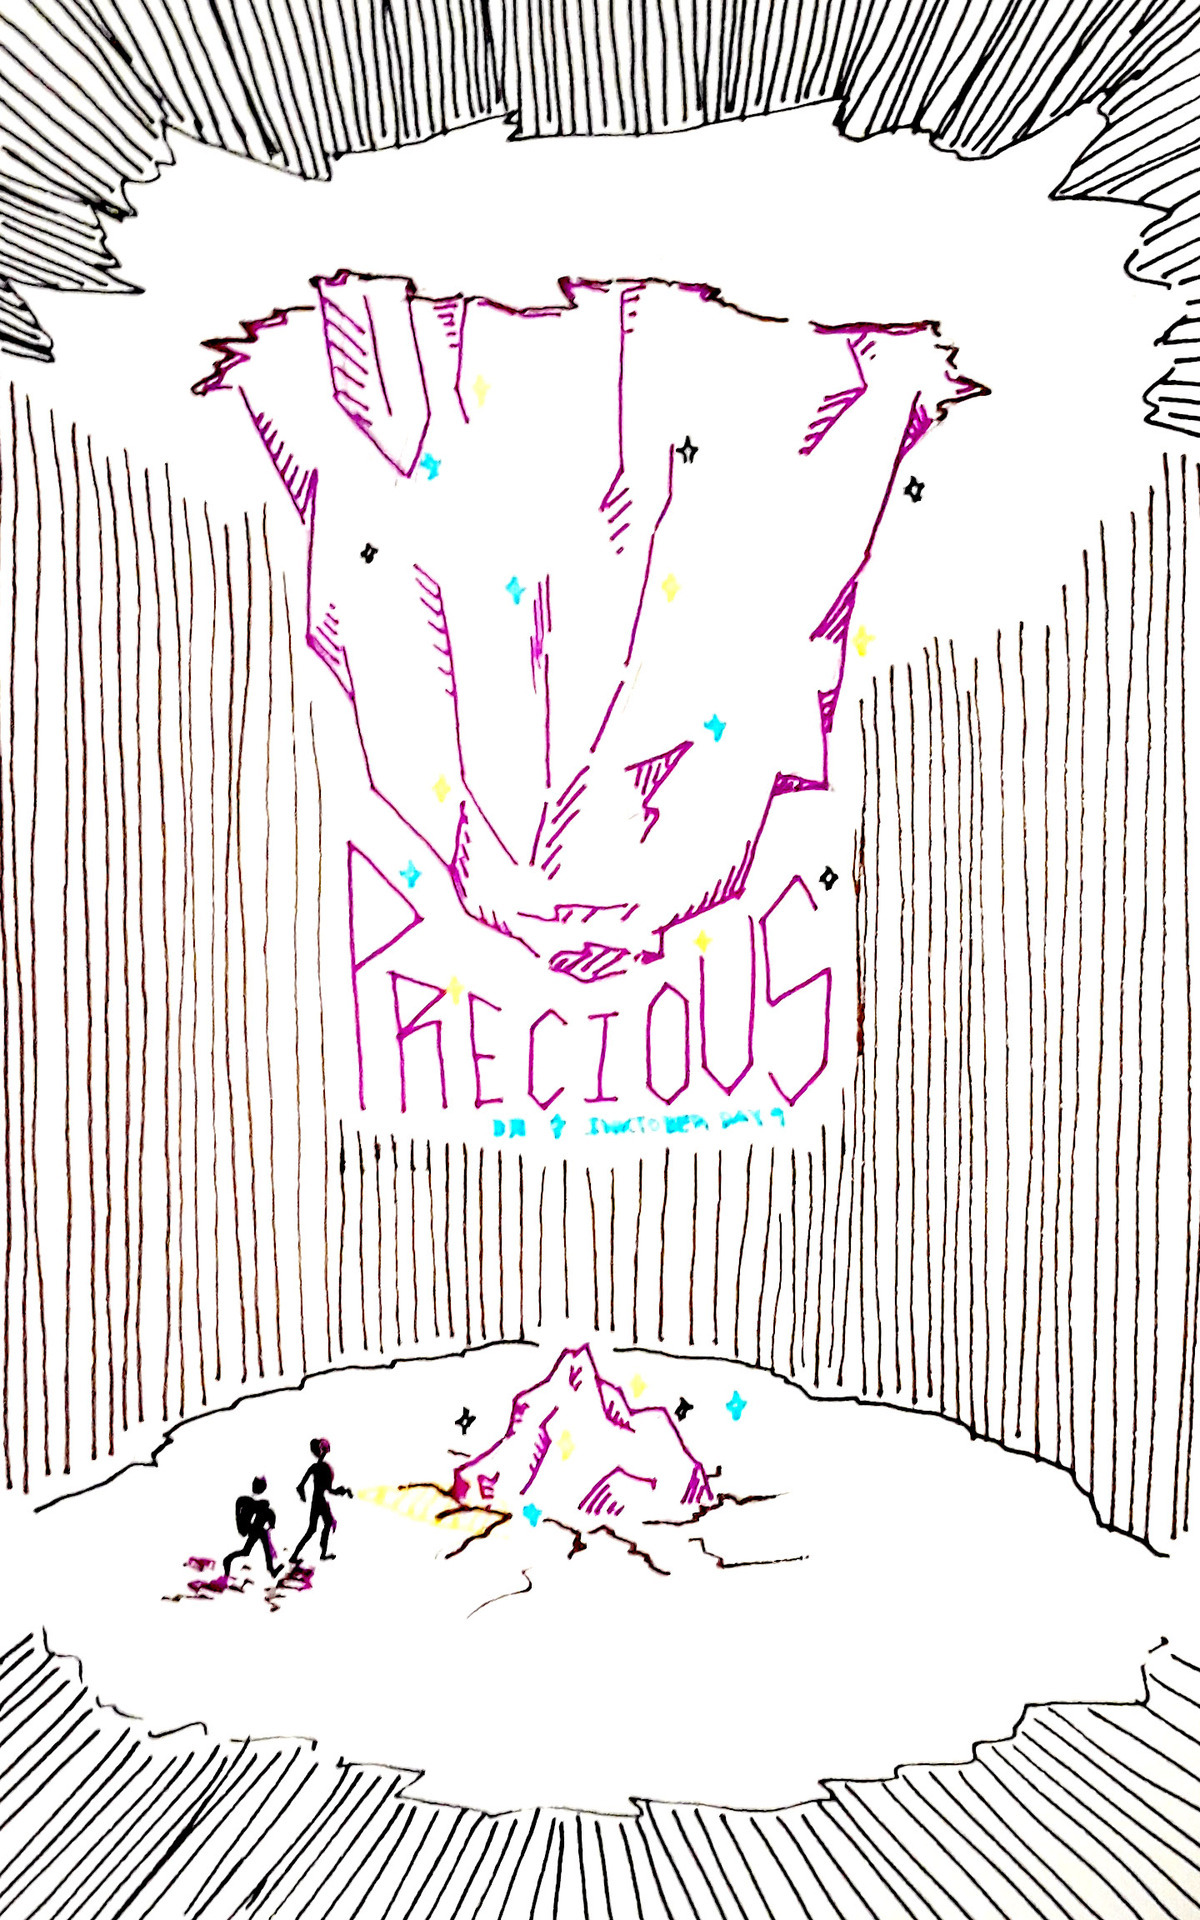 PRECIOUS
INKTOBER DAY 9